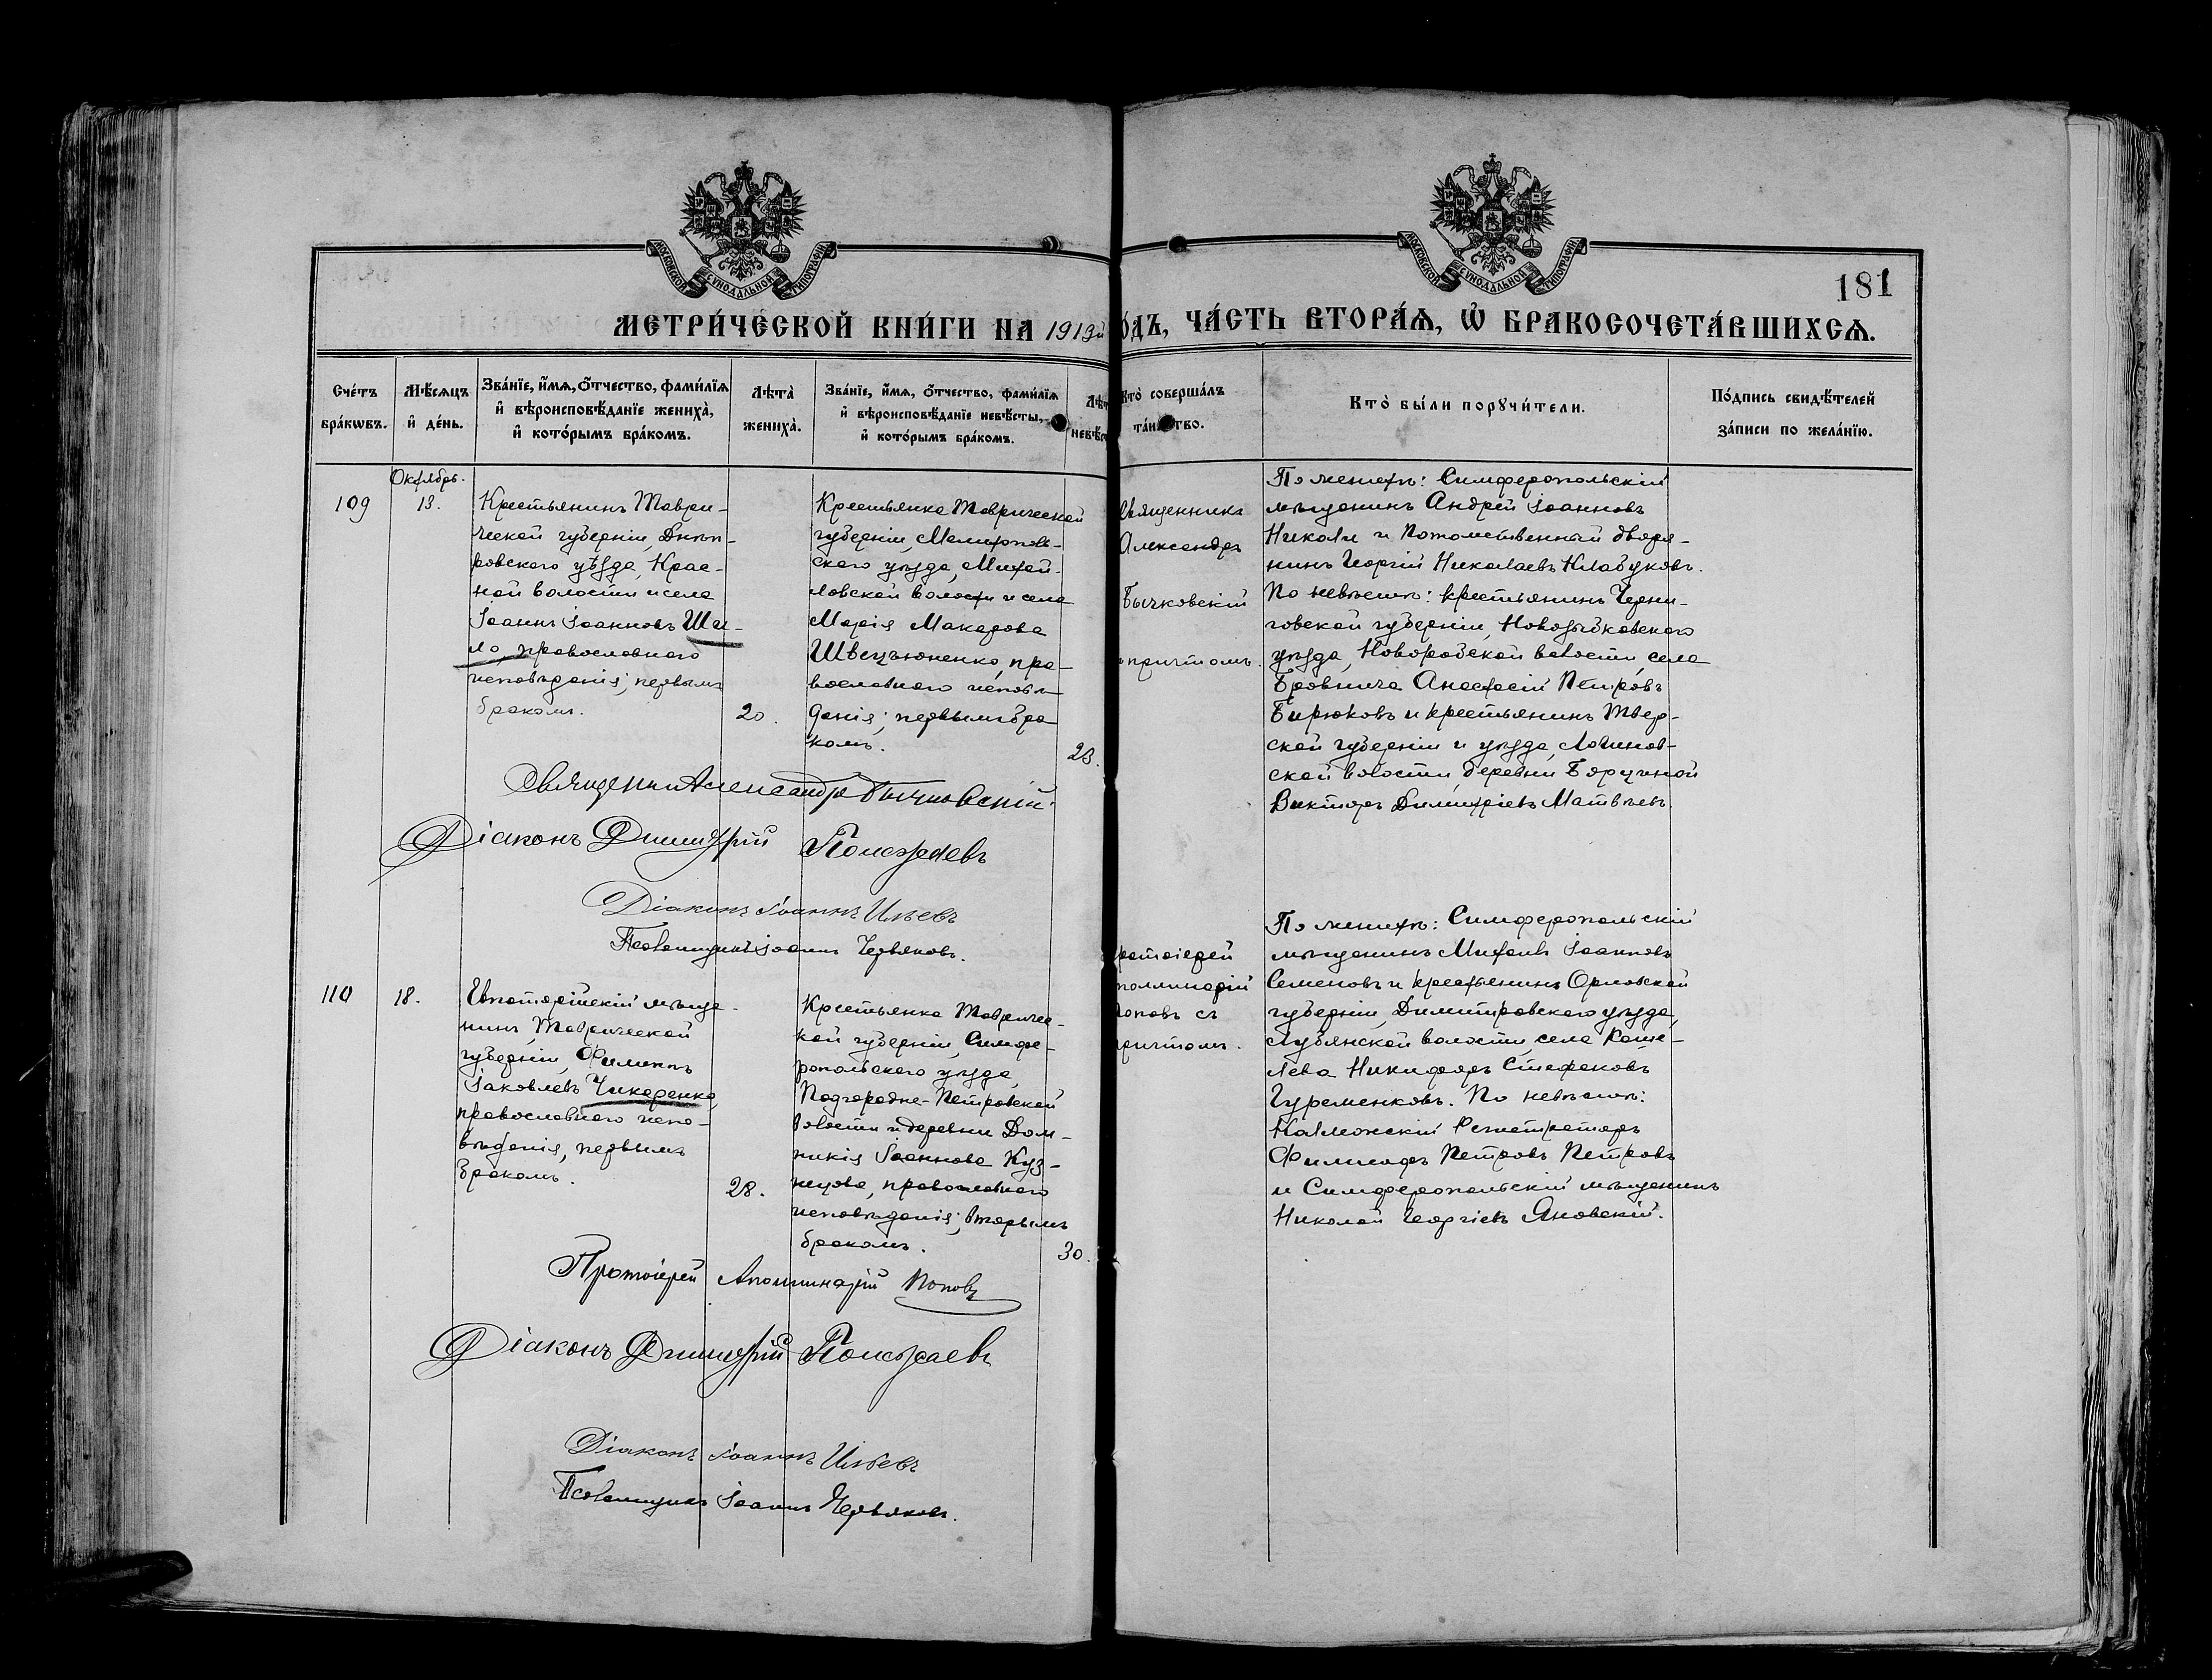 МОСКОВСКОЙ СУНОДАЛЬНОЙ ТИПОГРАФІИ
МОСКОВСКОЙ СУНОДАЛЬНОЙ ТИПОГРАФІИ
181
МЕТРИ́ЧЕСКОЙ КНИ́ГИ НА 1913й
О́ДЪ, ЧА́СТЬ ВТОРА́Ѧ, Ѡ҆ БРАКОСОЧЕТА́ВШИХСѦ.
Сче́тъ бра́кѡвъ.
Мѣ́сѧцъ и҆ де́нь.
Зва́нїе, и҆́мѧ, ѻ҆́тчество, фами́лїѧ
и҆ вѣроисповѣ́данїе жениха̀,
и҆ кото́рымъ бра́комъ.
Лѣ́та̀ жениха̀.
Зва́нїе, и҆́мѧ, ѻ҆́тчество, фами́лїѧ
и҆ вѣроисповѣ́данїе невѣ́сты,
и҆ кото́рымъ бра́комъ.
Лѣт
невѣс
Кто̀ соверша́лъ
та́инство.
Кто̀ бы́ли порꙋчи́тели.
По́дпись свидѣ́телей
за́писи по жела́нїю.
Октябрь.
109
13.
Крестьянинъ Таври-
ческой губерніи, Днѣп-
ровскаго уѣзда, Крас-
ной волости и села
Іоаннъ Іоанновъ Ши-
ло, православнаго
исповѣданія; первымъ
бракомъ.
20.
Крестьянка Таврической
губерніи, Мелитополь-
скаго уѣзда, Михай-
ловской волости и села
Марія Макарова
Швецъюненко, пра-
вославнаго исповѣ-
данія; первымъ бра-
комъ.
23.
Священникъ
Александръ
Бычковскій
причтомъ.
По женихѣ: Симферопольскій
мѣщанинъ Андрей Іоанновъ
Николи и Потомственный дворя-
нинъ Георгій Николаевъ Клабуковъ.
По невѣстѣ: крестьянинъ Черни-
говской губерніи, Новозыбковскаго
уѣзда, Новоробской волости, села
Бровнича Анастасій Петровъ
Бирюковъ и крестьянинъ Твер-
ской губерніи и уѣзда,
ской волости, деревни
Викторъ Димитріевъ Матвѣевъ.
Священникъ Александръ Бычковскій.
Діаконъ Димитрій Полежаевъ
Діаконъ Іоаннъ Ильевъ
Псаломщикъ Іоаннъ Червяковъ.
110
18.
Евпаторійскій мѣща-
нинъ, Таврической
губерніи, Филиппъ
Іаковлевъ Чикаренко,
православнаго испо-
вѣданія, первымъ
бракомъ.
28.
Крестьянка Тавричес-
кой губерніи, Симфе-
ропольскаго уѣзда,
Подгородне-Петровской
волости и деревни Дом-
никія Іоаннова Куз-
нецова, православнаго
исповѣданія; вторымъ
бракомъ.
30.
ротоіерей
поллинарій
Поповъ съ
причтомъ.
По женихѣ: Симферопольскій
мѣщанинъ Михаилъ Іоанновъ
Семеновъ и крестьянинъ Орловской
губерніи, Димитровскаго уѣзда,
Лубянской волости, села Коше-
лева Никифоръ Стефановъ
Гуременковъ. По невѣстѣ:
Коллежскій Регистраторъ
Филимонъ Петровъ Петровъ
и Симферопольскій мѣщанинъ
Николай Георгіевъ Яновскій.
Протоіерей Аполлинарій Поповъ
Діаконъ Димитрій Полежаевъ
Діаконъ Іоаннъ Ильевъ
Псаломщикъ Іоаннъ Червяковъ.